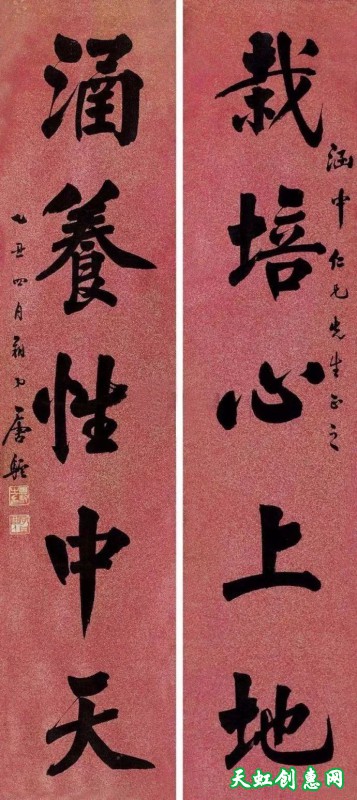 栽培心上地
涵中仁兄先生正之
涵養性中天
乙丑四月翔下唐駝
天虹创惠网